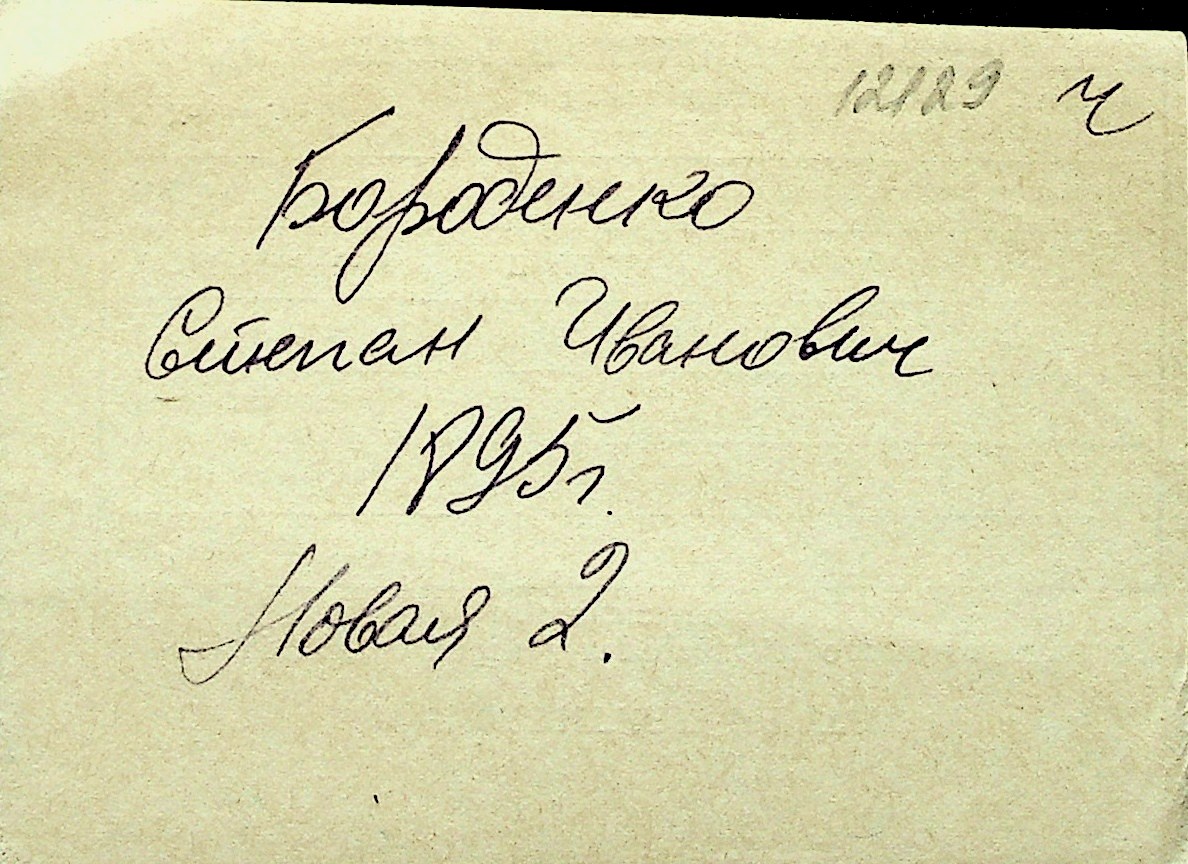 12129 ч
Бороденко
Степан Иванович
1895г.
Новая 2.